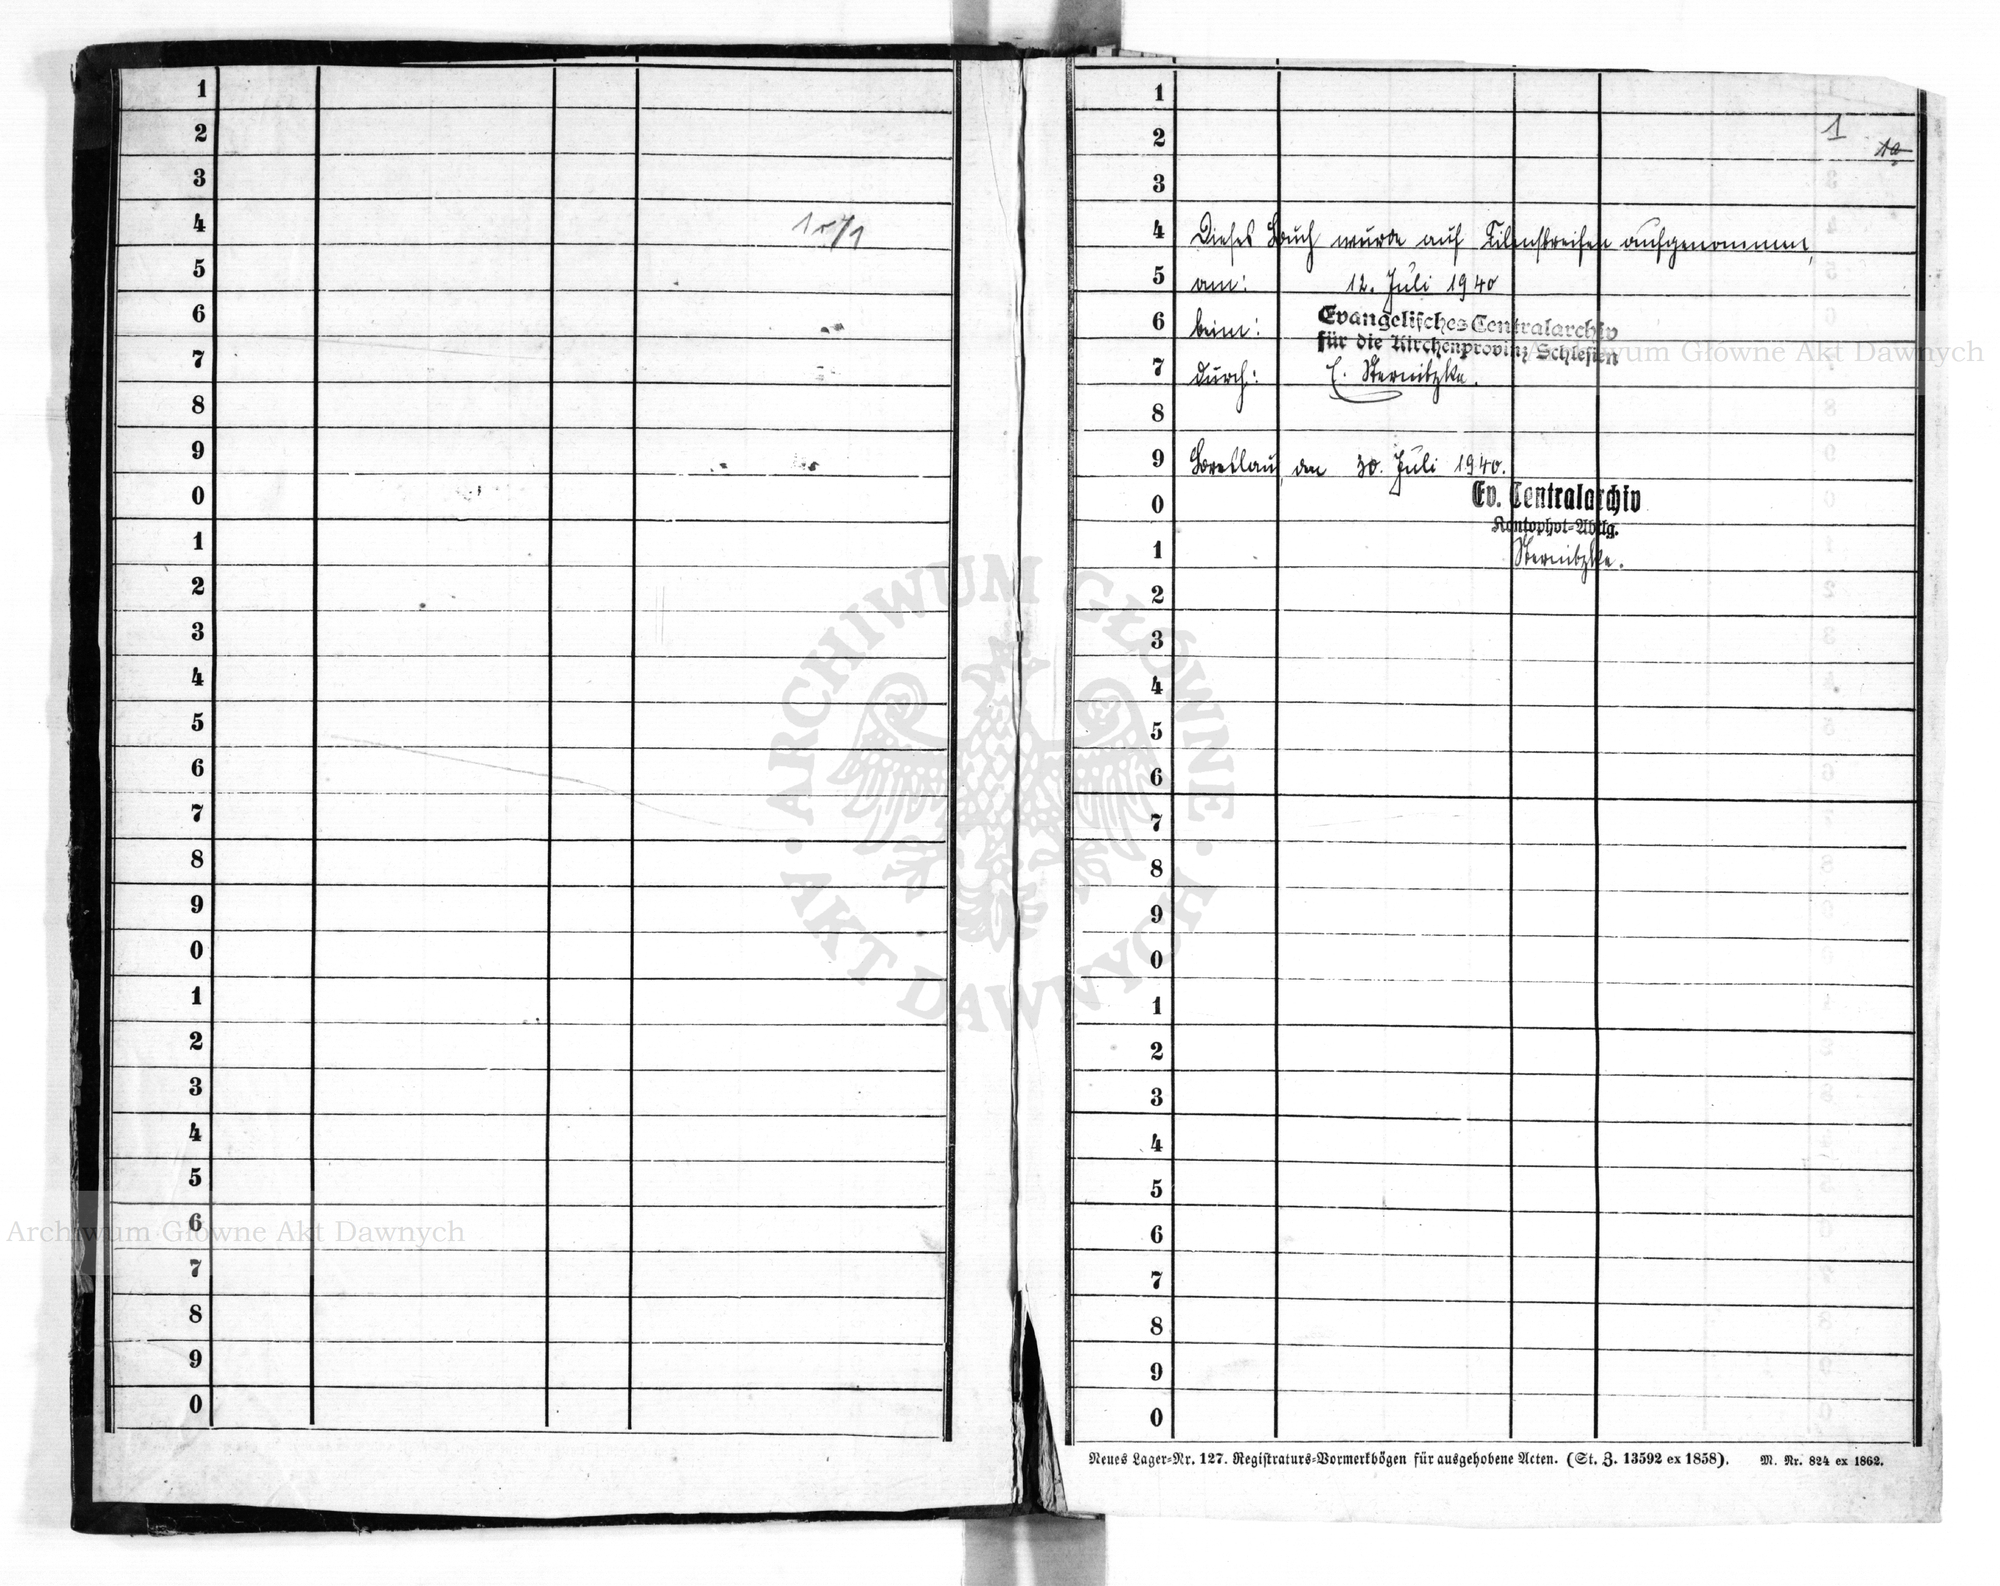 1
2
3
4
5
6
7
8
9
0
1
2
3
4
5
6
7
8
9
0
1
2
3
4
5
6
7
8
9
0
1
1a
1
2
3
4 Dieses Buch wurde auf Filmstreifen aufgenommen,
5 am: 12. Juli 1940
6 beim: Evangelisches Centralarchiv
für die Kirchenprovinz Schlesien
7 durch: E. Sternitzke.
8
9 Breslau, den 30. Juli 1940.
0 Ev. Centralarchiv
Kontophot-Abtlg.
1 Sternitzke.
2
3
4
5
6
7
8
9
0
1
2
3
4
5
6
7
8
9
0
Neues Lager-Nr. 127. Registraturs-Vormerkbögen für ausgehobene Acten. (St. Z. 13592 ex 1858). M. Nr. 824 ex 1862.
ARCHIWUM GŁÓWNE
AKT DAWNYCH
Archiwum Główne Akt Dawnych
Archiwum Główne Akt Dawnych